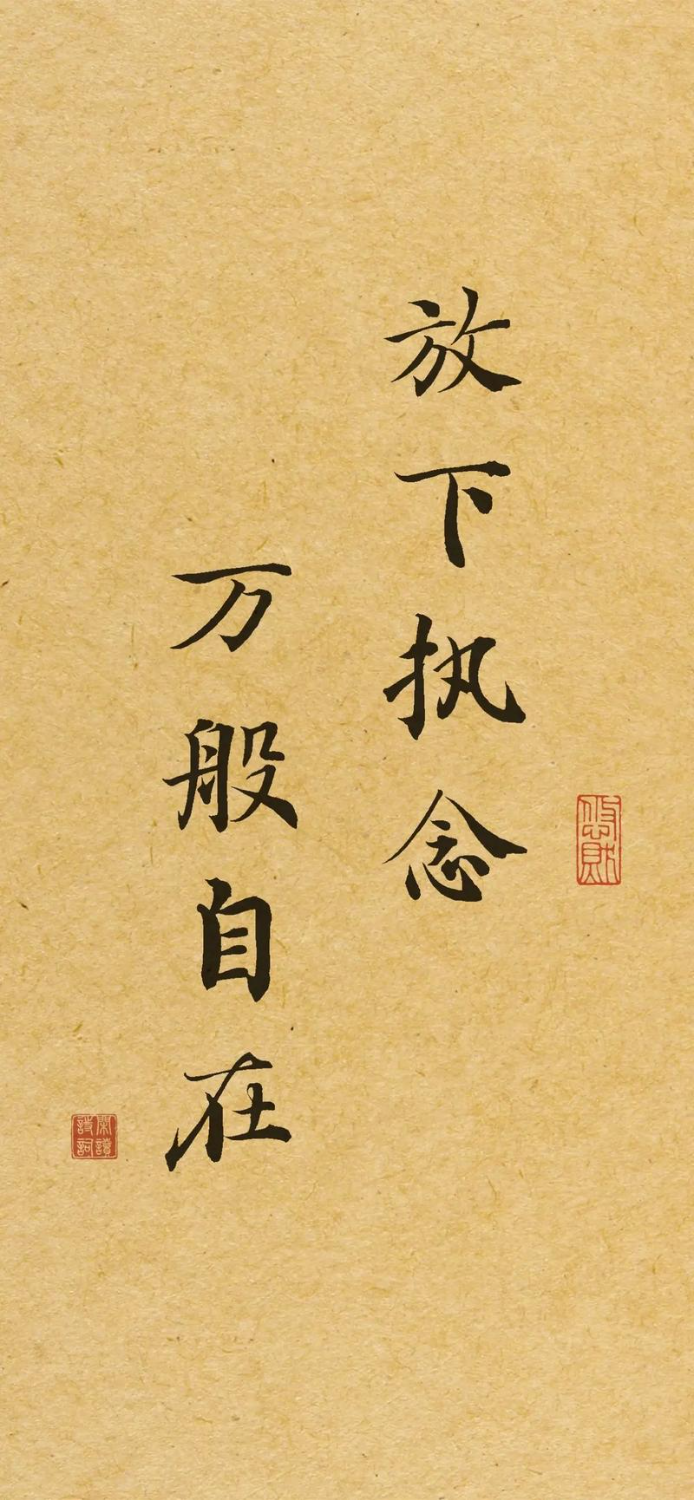 放下执念
万般自在